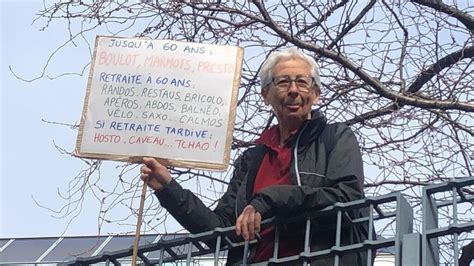 JUSQU'À 60 ANS :
BOULOT, MARMOTS, PRESTO
RETRAITE À 60 ANS :
RANDOS, RESTAUS, BRICOLO,
APÉROS, ABDOS, BALNÉO,
VÉLO, SAXO... CALMOS
SI RETRAITE TARDIVE :
HOSTO, CAVEAU... TCHAO !